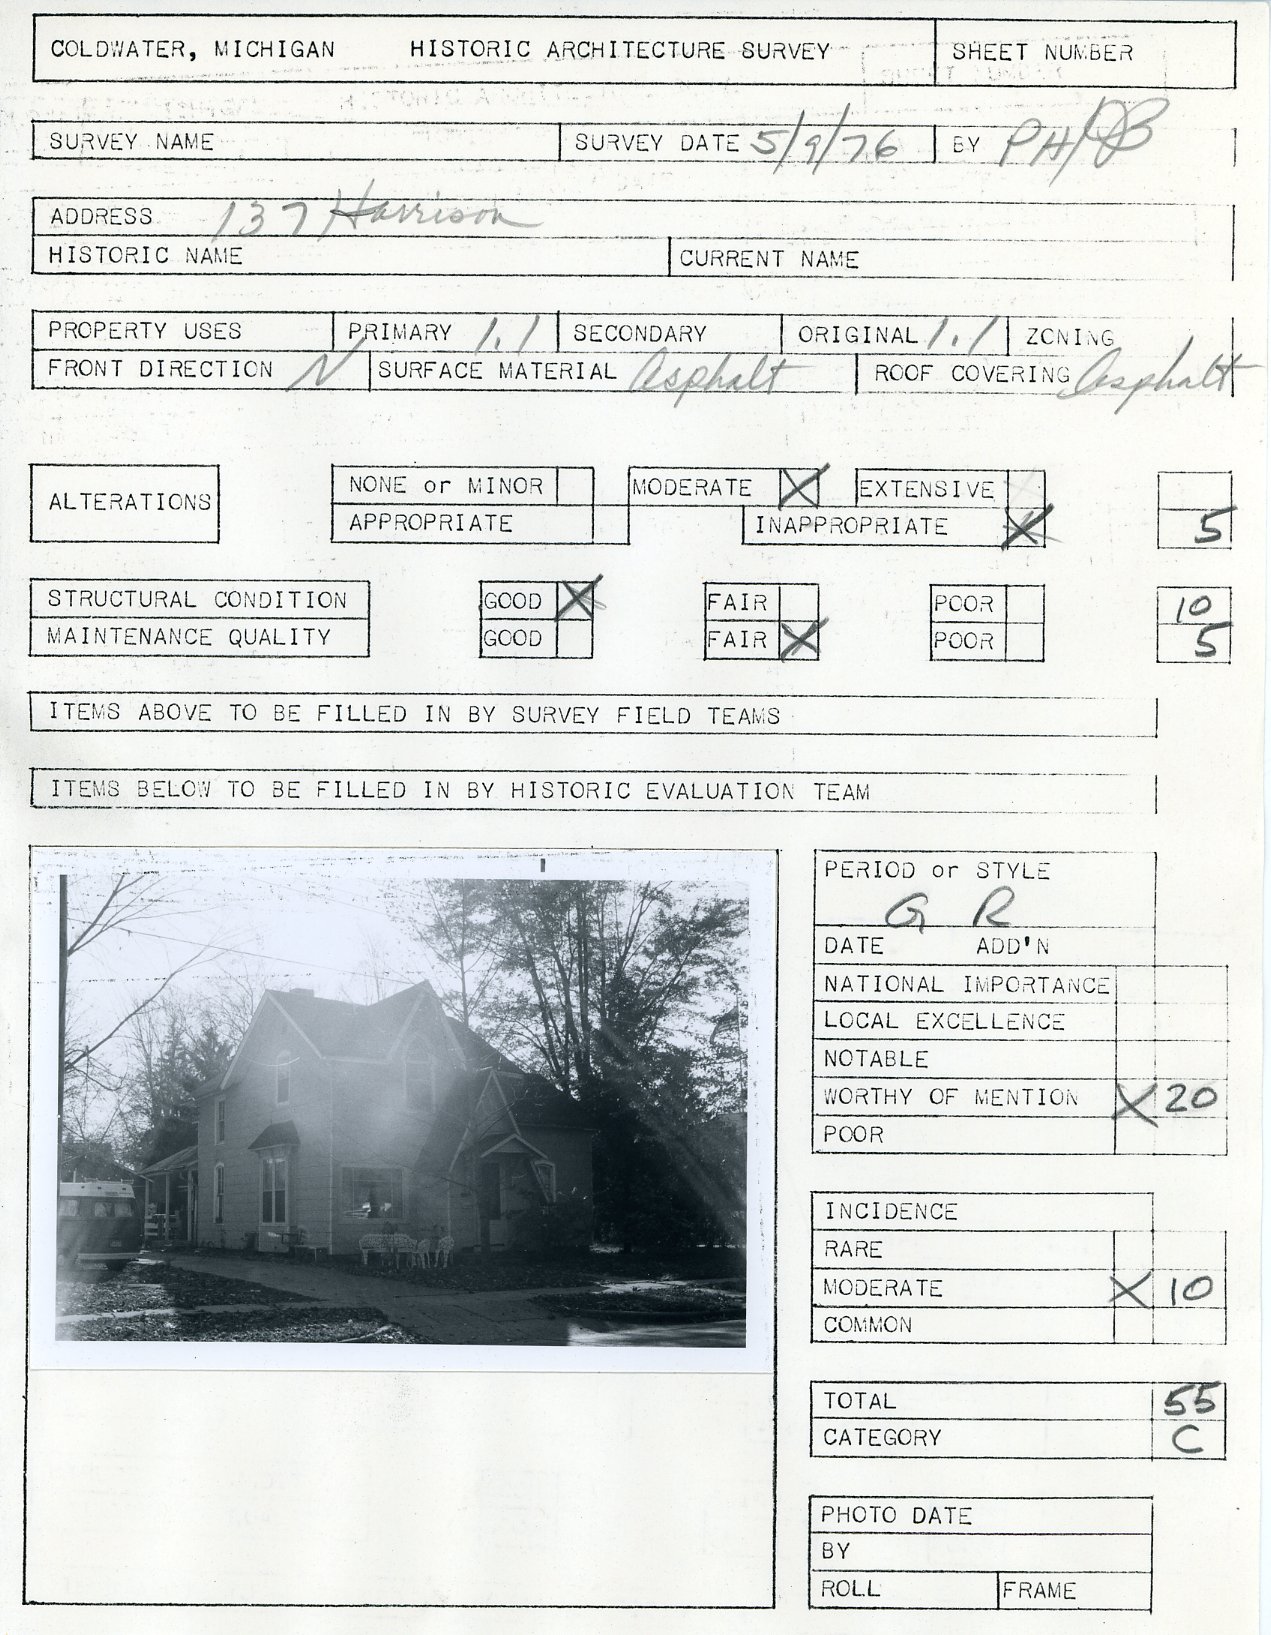 COLDWATER, MICHIGAN HISTORIC ARCHITECTURE SURVEY SHEET NUMBER
SURVEY NAME SURVEY DATE 5/9/76 BY PH/
ADDRESS 137 Harrison
HISTORIC NAME CURRENT NAME
PROPERTY USES PRIMARY 1.1 SECONDARY ORIGINAL 1.1 ZONING
FRONT DIRECTION N SURFACE MATERIAL Asphalt ROOF COVERING Asphalt
ALTERATIONS NONE or MINOR MODERATE X EXTENSIVE
APPROPRIATE INAPPROPRIATE X 5
STRUCTURAL CONDITION GOOD X FAIR POOR 10
MAINTENANCE QUALITY GOOD FAIR X POOR 5
ITEMS ABOVE TO BE FILLED IN BY SURVEY FIELD TEAMS
ITEMS BELOW TO BE FILLED IN BY HISTORIC EVALUATION TEAM
PERIOD or STYLE
G R
DATE ADD'N
NATIONAL IMPORTANCE
LOCAL EXCELLENCE
NOTABLE
WORTHY OF MENTION X 20
POOR
INCIDENCE
RARE
MODERATE X 10
COMMON
TOTAL 55
CATEGORY C
PHOTO DATE
BY
ROLL FRAME